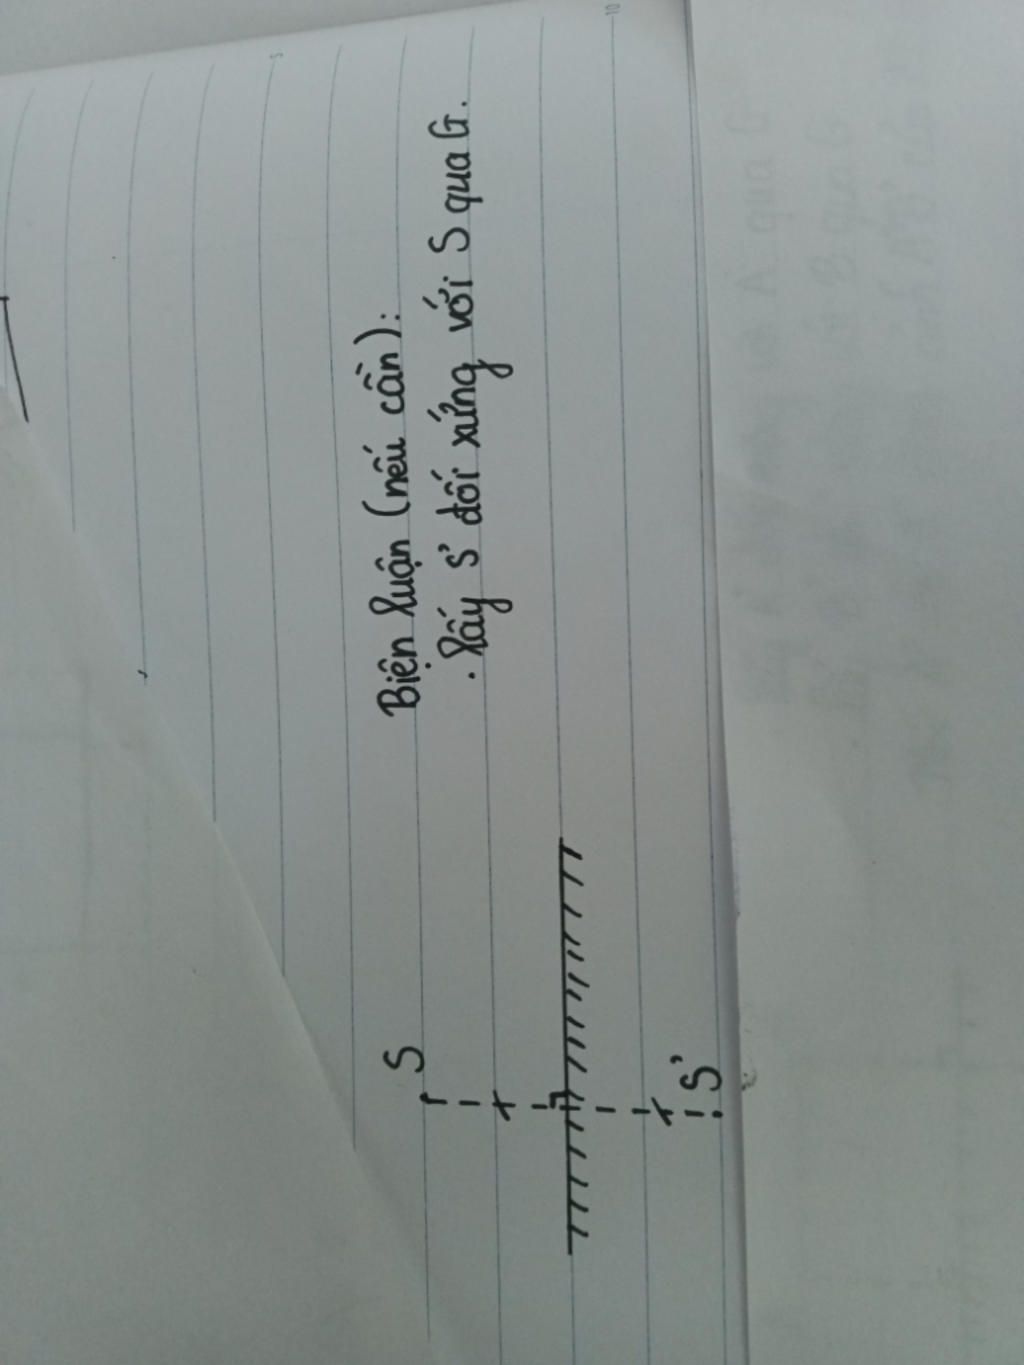 Biện luận (nếu cần):
. lấy S' đối xứng với S qua G.
S
S'
5
10